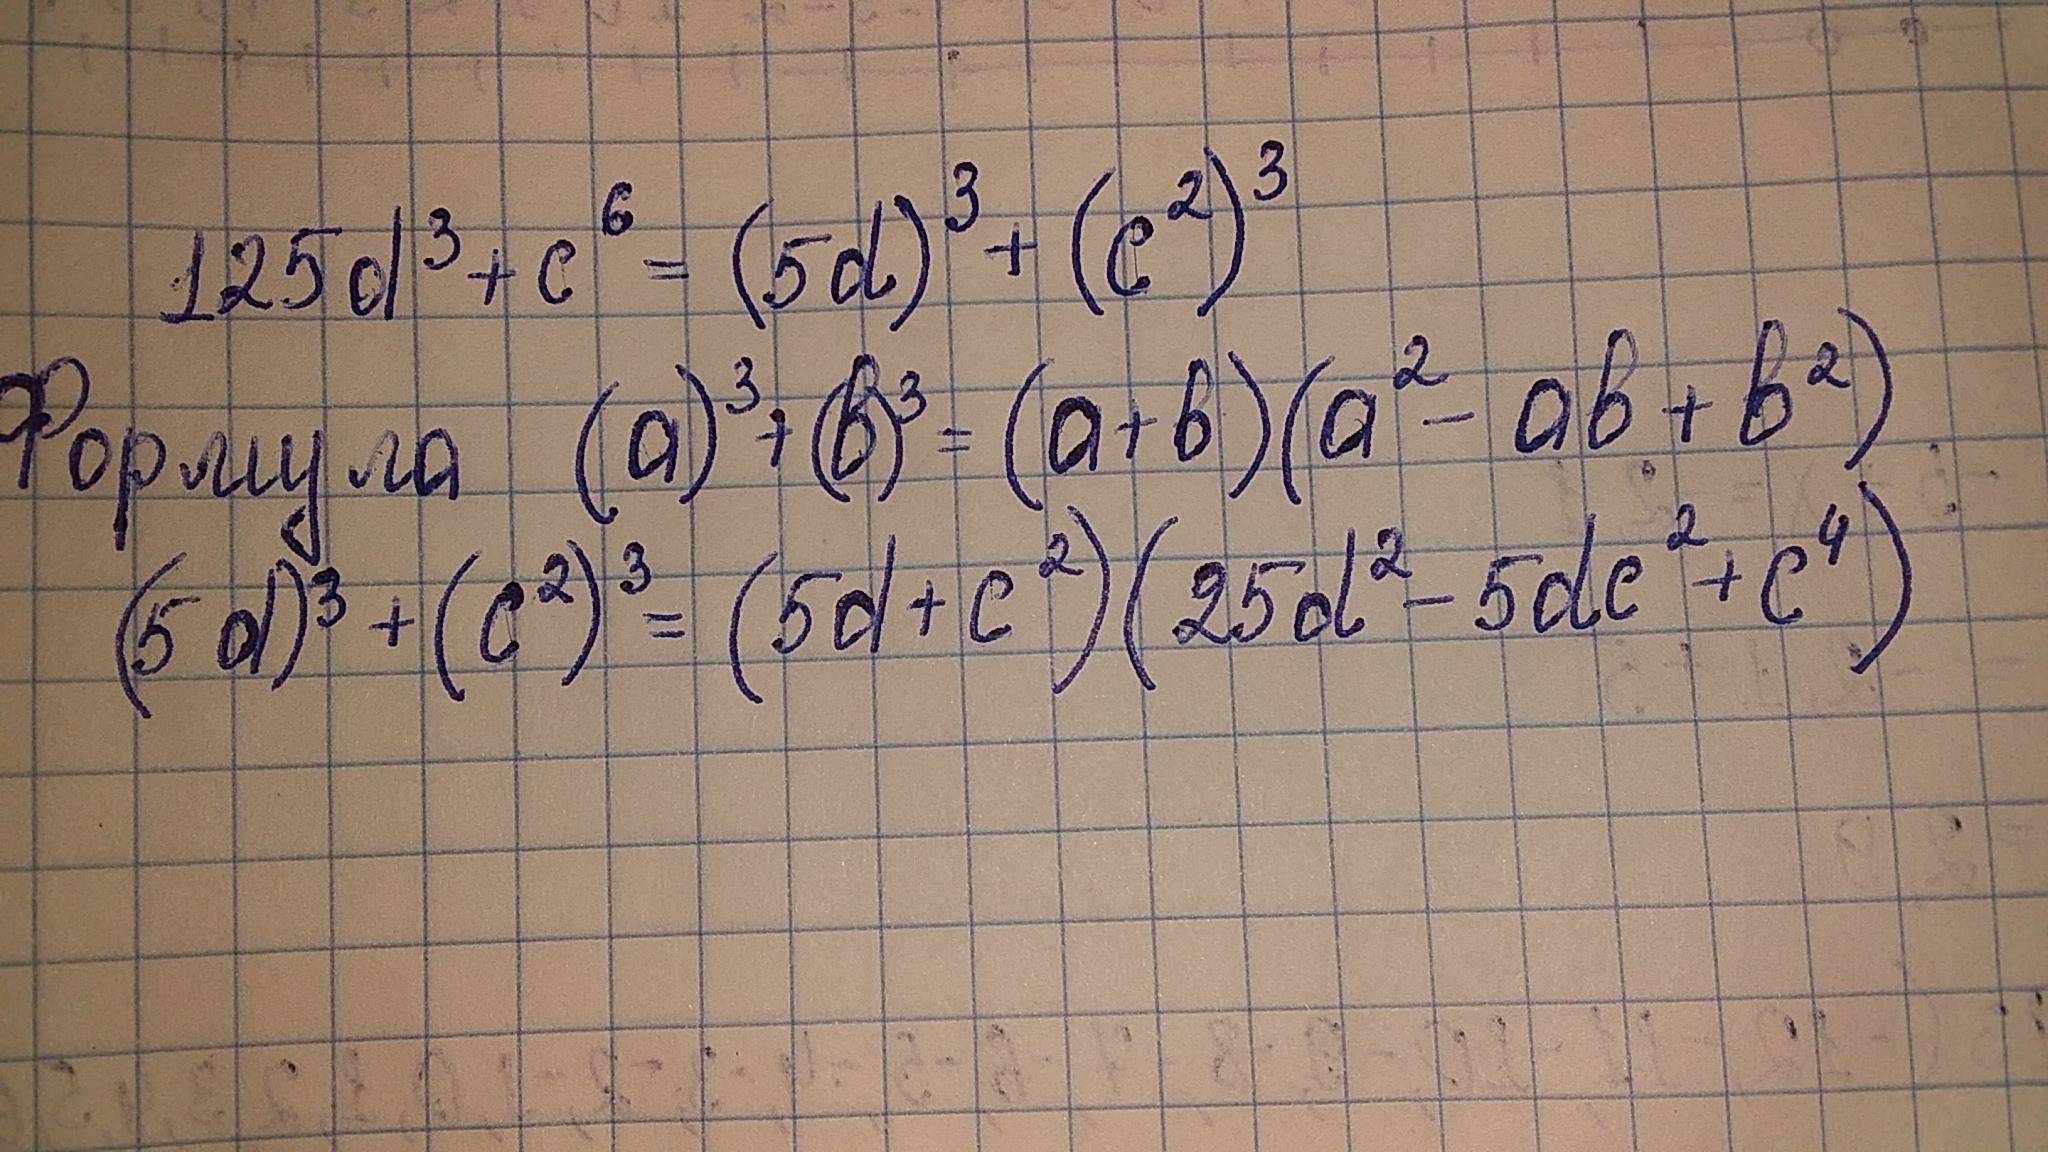 125d³+c⁶=(5d)³+(c²)³
Формула (a)³+(b)³=(a+b)(a²-ab+b²)
(5d)³+(c²)³=(5d+c²)(25d²-5dc²+c⁴)